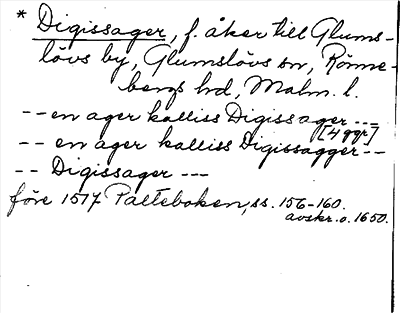 * Digissager, f. åker till Glums-
lövs by, Glumslövs sn, Rönne-
bergs hd, Malm. l.
-- en ager kalliss Digissager ---
[4 ggr]
-- en ager kalliss Digissagger --
-- Digissager ---
före 1517 Palteboken, ss. 156-160.
avskr. o. 1650.